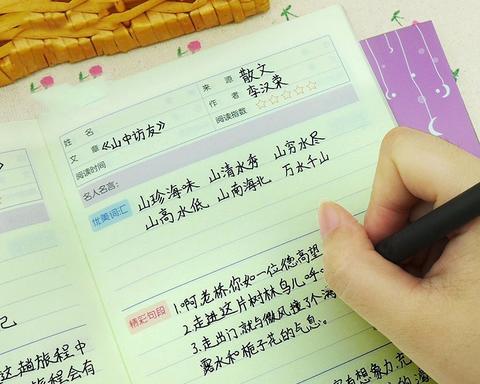 来 源 散文
姓 名
作 者 李汉荣
文 章《山中访友》
阅读指数 ☆☆☆☆☆
阅读时间
名人名言:
优美词汇 山珍海味 山清水秀 山穷水尽
山高水低 山南海北 万水千山
精彩句段 1.啊老桥,你如一位德高望
2.走进这片树林,鸟儿呼
3.走出门,就与微风撞了个满
露水和栀子花的气息。
己
这趟旅程中
旅程会有
富有想象力,充